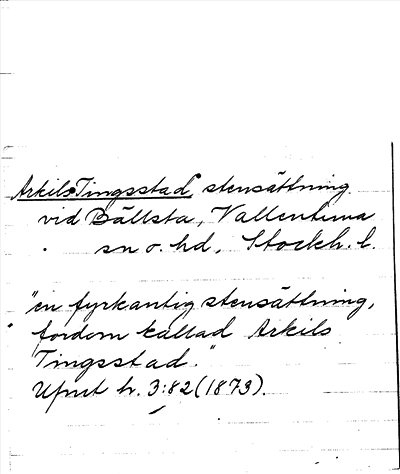 Arkils Tingsstad, stensättning
vid Bällsta, Vallentuna
sn o. hd, Stockh. l.
"en fyrkantig stensättning,
fordom kallad Arkils
Tingsstad."
Upmt h. 3:82 (1873).